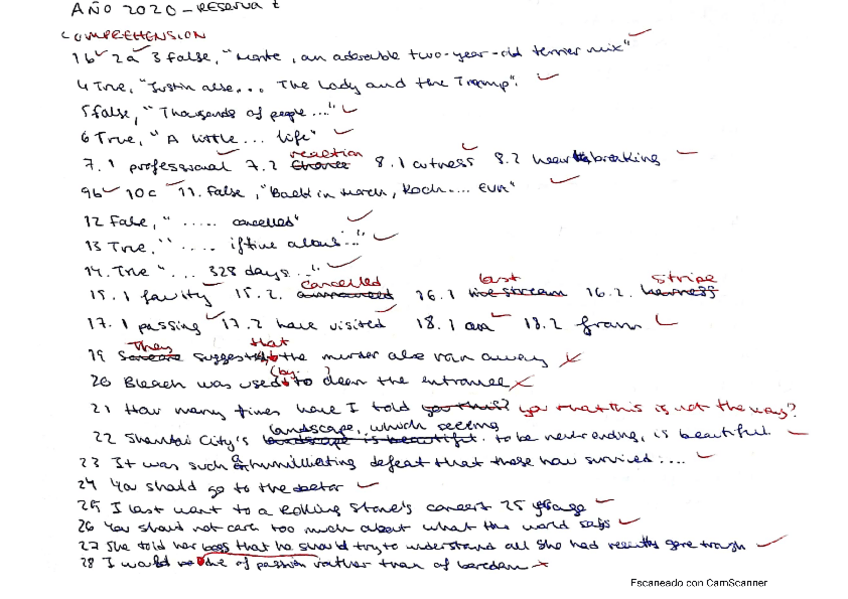 AÑO 2020 - RESERVA
COMPREHENSION
1b 2a 3 False, "Monte, an adorable two-year-old terrier mix"
4 True, "Justin also... The Lady and the Tramp".
5 False, "Thousands of people..."
6 True, "A little... life"
reaction
7.1 professional 7.2 chance 8.1 cutness 8.2 heartbreaking
9b 10c 11. False, "Back in March, Koch.... EVA"
12 False, "..... cancelled"
13 True, "..... if five alous..."
14. True "... 328 days..."
cancelled last stripe
15.1 favity 15.2. announced 16.1 live stream 16.2. harness
17.1 passing 17.2 have visited 18.1 on 18.2 from
They that
19 Someone suggest the murder also ran away
(by ?)
20 Bleach was used to clean the entrance
21 How many times have I told you this? you that this is not the way?
landscape, which seems
22 Shanhai City's landscape is beautiful. to be neverending, is beautiful.
23 It was such a humilliating defeat that those how survived....
24 You should go to the doctor
25 I last went to a Rolling Stone's concert 25 years ago
26 You should not care too much about what the world says
27 She told her boss that he should try to understand all she had recently gone trough
28 I would die of passion rather than of boredom
Escaneado con CamScanner